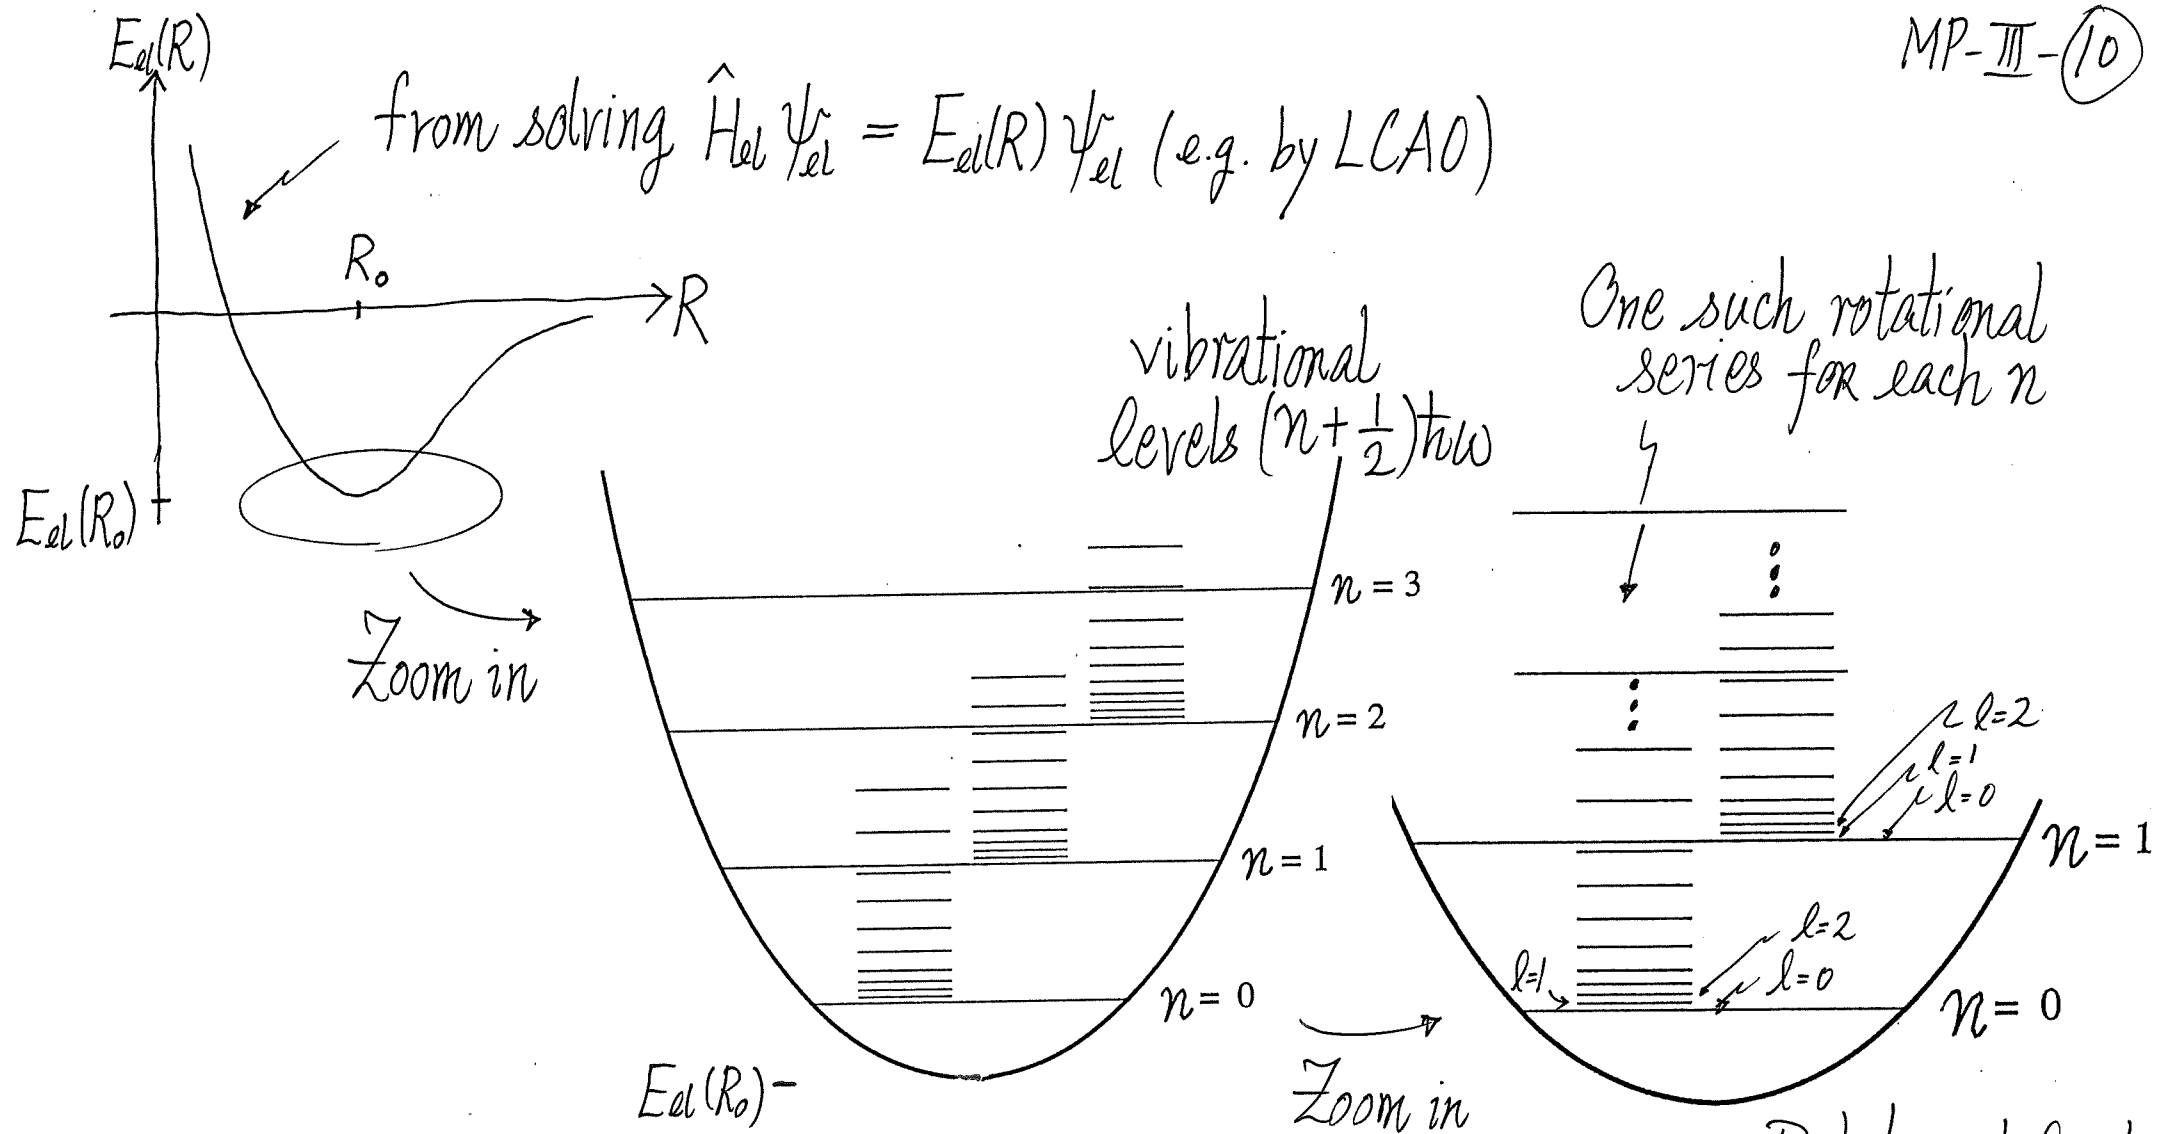 MP-III-10
E_el(R)
from solving Ĥ_el ψ_el = E_el(R) ψ_el (e.g. by LCAO)
R_0
R
E_el(R_0)
Zoom in
vibrational
levels (n+1/2)ħω
One such rotational
series for each n
n = 3
n = 2
n = 1
n = 0
E_el(R_0)
Zoom in
l=2
l=1
l=0
n = 1
l=2
l=1
l=0
n = 0